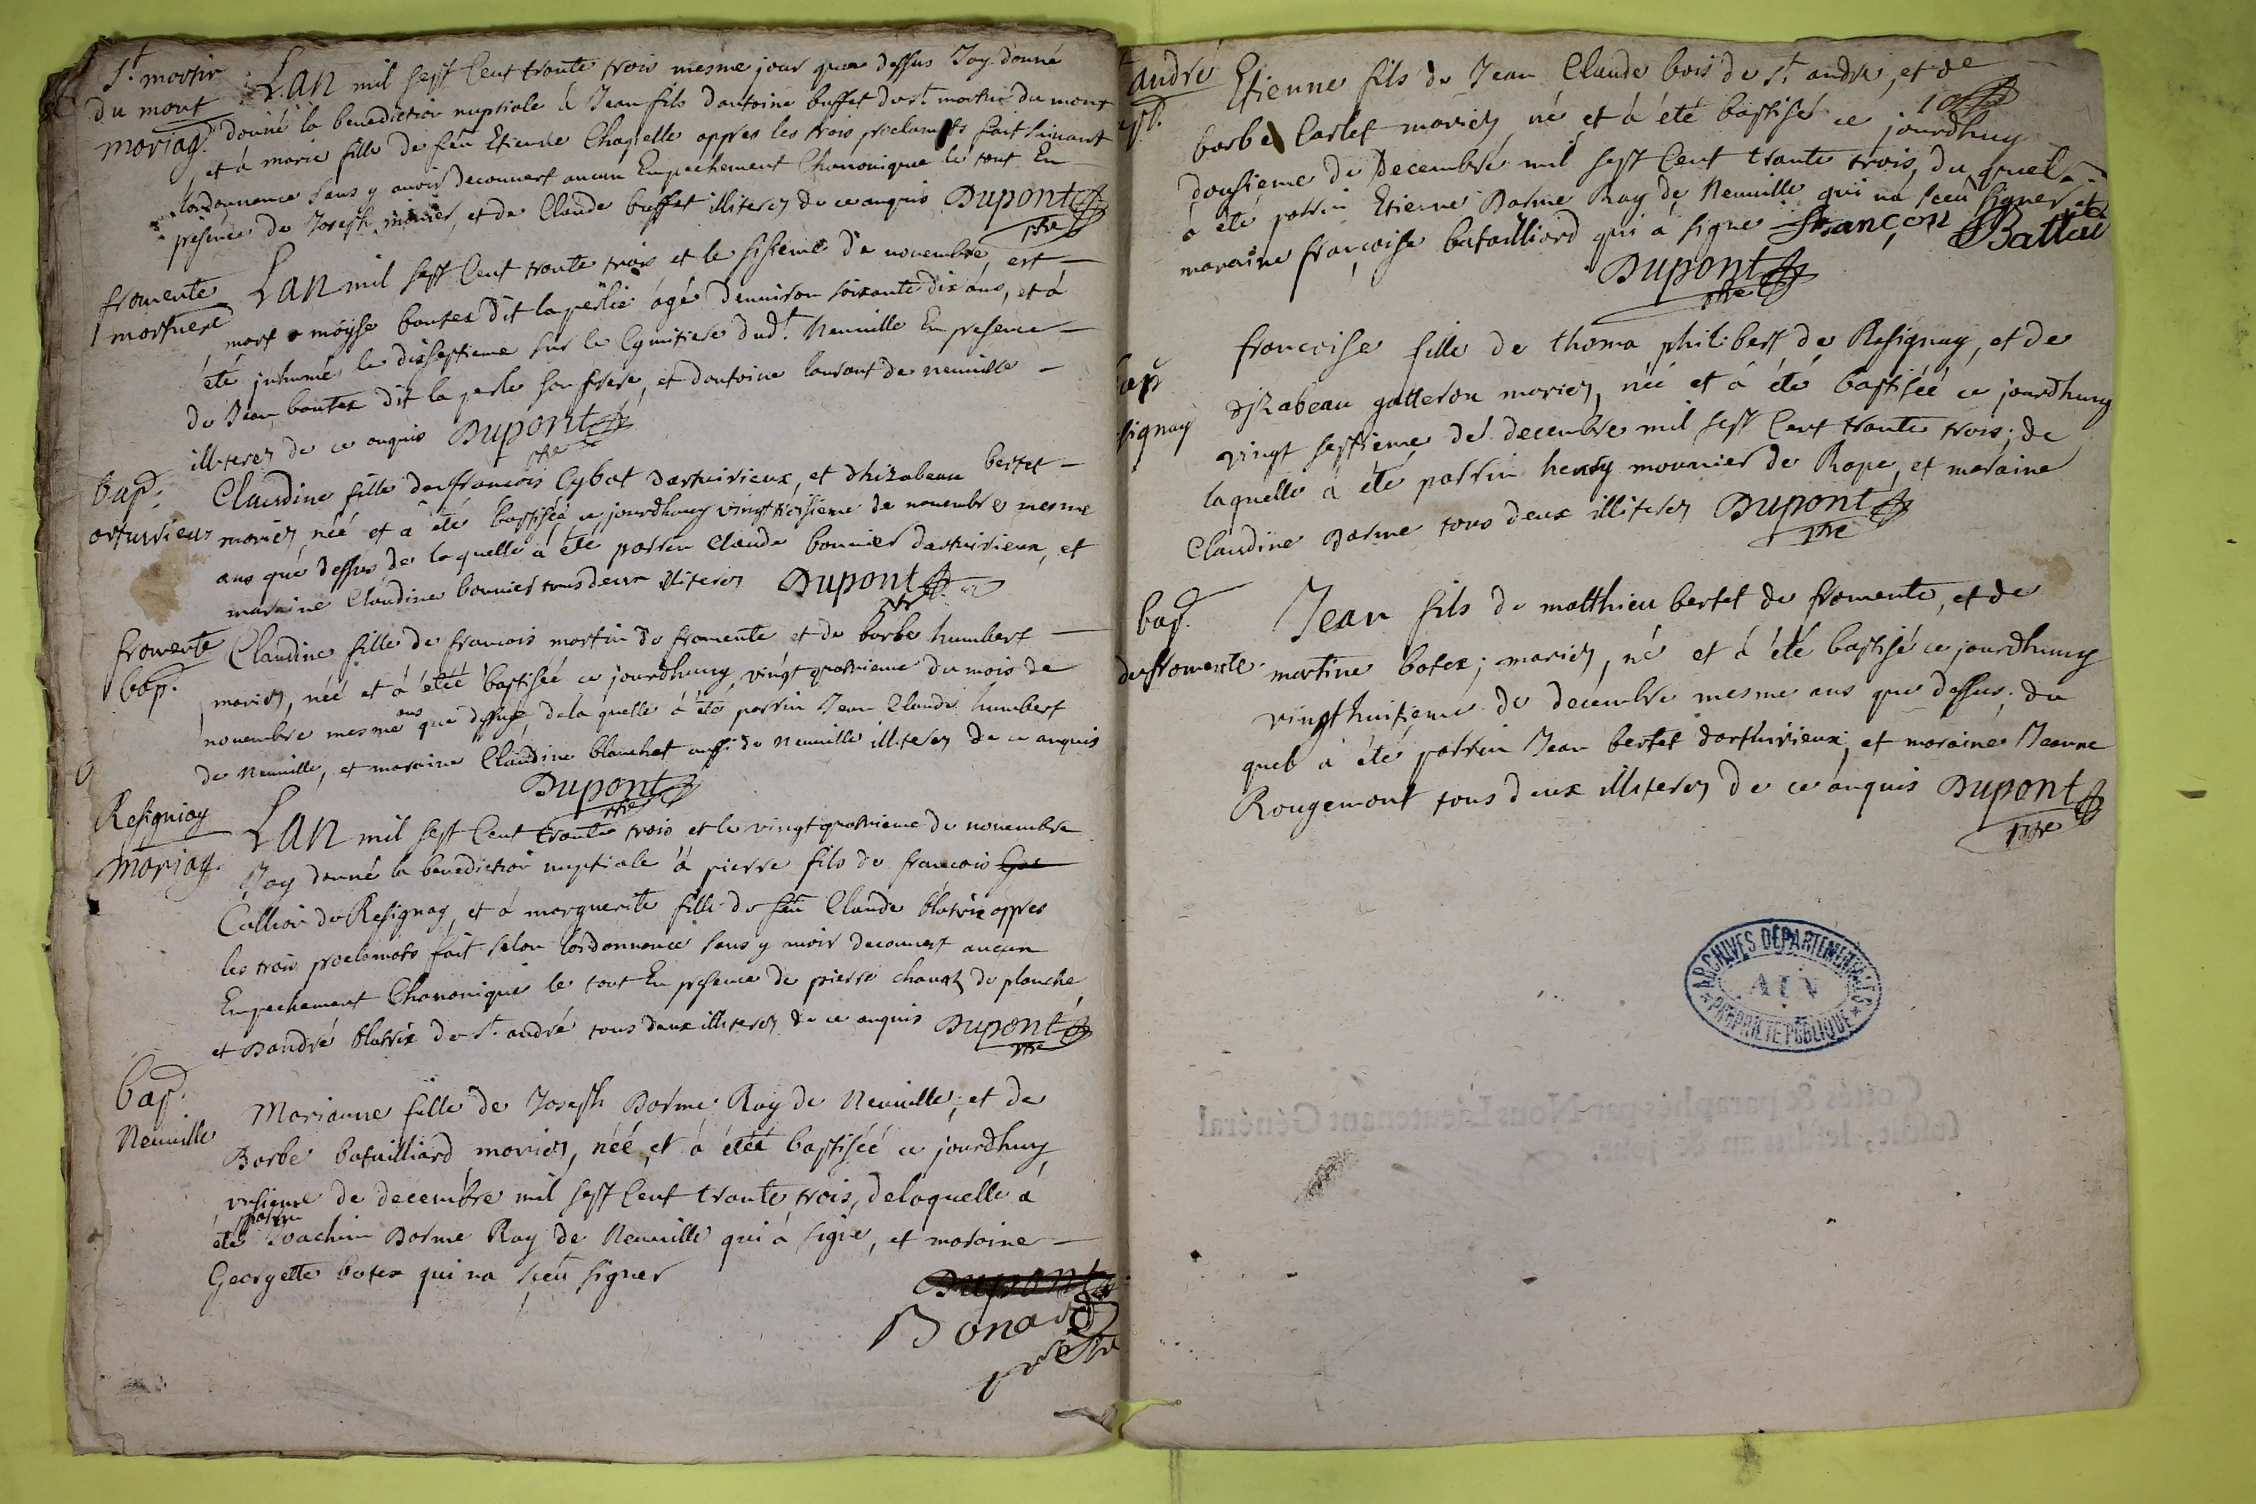 St. martin
du mont
mariag.
LAN mil sept Cent trante trois mesme jour que dessus Jay donné
donné la benediction nuptiale à Jean fils dantoine buffet de st. martin du mont
et à marie fille de feu Etienne Chapelle appres les trois proclamats fait suivant
lordonnance sans y avoir decouvert aucun Empechement Chanonique le tout En
presence de Joseph, et de Claude buffet illiterez de ce anquis Dupont
ptre
fromente
mortuere
LAN mil sept Cent trante trois et le sisieme de novembre, est
mort moÿse boutex dit la perlie âgé denviron soixante dix ans, et à
été inhumé le dixseptieme sur le Cymitiere dudt. Neuville En presence
de Jean boutex dit la perle son frere, et dantoine laurant de neuville
illiterez de ce anquis Dupont
ptre
bap.
arturieux
Claudine fille de francois Cybat darturieux, et dhizabeau bertet
mariez néé et à été baptiséé ce jourdhuy vingt troisieme de novembre mesme
ans que dessus de laquelle à été parrin Claude bonnier darturieux, et
maraine Claudine bonnier tous deux illiterez Dupont
ptre
fromente
bap.
Claudine fille de francois martin de fromente et de barbe humbert
mariez, néé et à étéé baptiséé ce jourdhuy, vingt quatrieme du mois de
novembre mesme ans que dessus, de la quelle à été parrin Jean Claude humbert
de Neuville, et maraine Claudine blanchet aussi de Neuville illiterez de ce anquis
Dupont
ptre
Resignay
Mariag.
LAN mil sept Cent trante trois et le vingt quatrieme de novembre
Jay donné la benediction nuptiale à pierre fils de francois
Cullion de Resignay, et à marguerite fille de feu Claude blatrix appres
les trois proclamats fait selon lordonnance sans y avoir decouvert aucun
Empechement Chanonique le tout En presence de pierre de planche
et Dandré blatrix de St. andré tous deux illiterez de ce anquis Dupont
ptre
bap.
Neuville
Marianne fille de Joseph Darme Ray de Neuville, et de
Barbe batailliard mariez, néé, et à étéé baptiséé ce jourdhuy
unsieme de decembre mil sept Cent trante trois, delaquelle à
été parrin Joachim Darme Ray de Neuville qui à signé, et maraine
Georgette botex qui na sceü signer
Dupont
Bonard
prêtre
andré
Etienne fils de Jean Claude bois de st. andre, et de
barbe Carlet mariez né et à été baptisé ce jourdhuy
dousieme de Decembre mil sept Cent trante trois, du quel
à été parrin Etienne Darme Ray de Neuville qui na sceü signer et
maraine francoise batailliard qui à signé francon Battal
Dupont
ptre
bap
signay
francoise fille de thoma philibert de Resignay, et de
Izabeau gatteron mariez, néé et à été baptiséé ce jourdhuy
vingt septieme de decembre mil sept Cent trante trois; de
laquelle à été parrin henry mounier de Rape, et maraine
Claudine Darme tous deux illiterez Dupont
ptre
bap.
de fromente
Jean fils de matthieu bertet de fromente, et de
martine botex; mariez, né et à été baptisé ce jourdhuy
vingt huitieme de decembre mesme ans que dessus, du
quel à été parrin Jean bertet darturieux, et maraine Jeanne
Rougemont tous deux illiterez de ce anquis Dupont
ptre
ARCHIVES DÉPARTEMENTALES
AIN
PROPRIÉTÉ PUBLIQUE